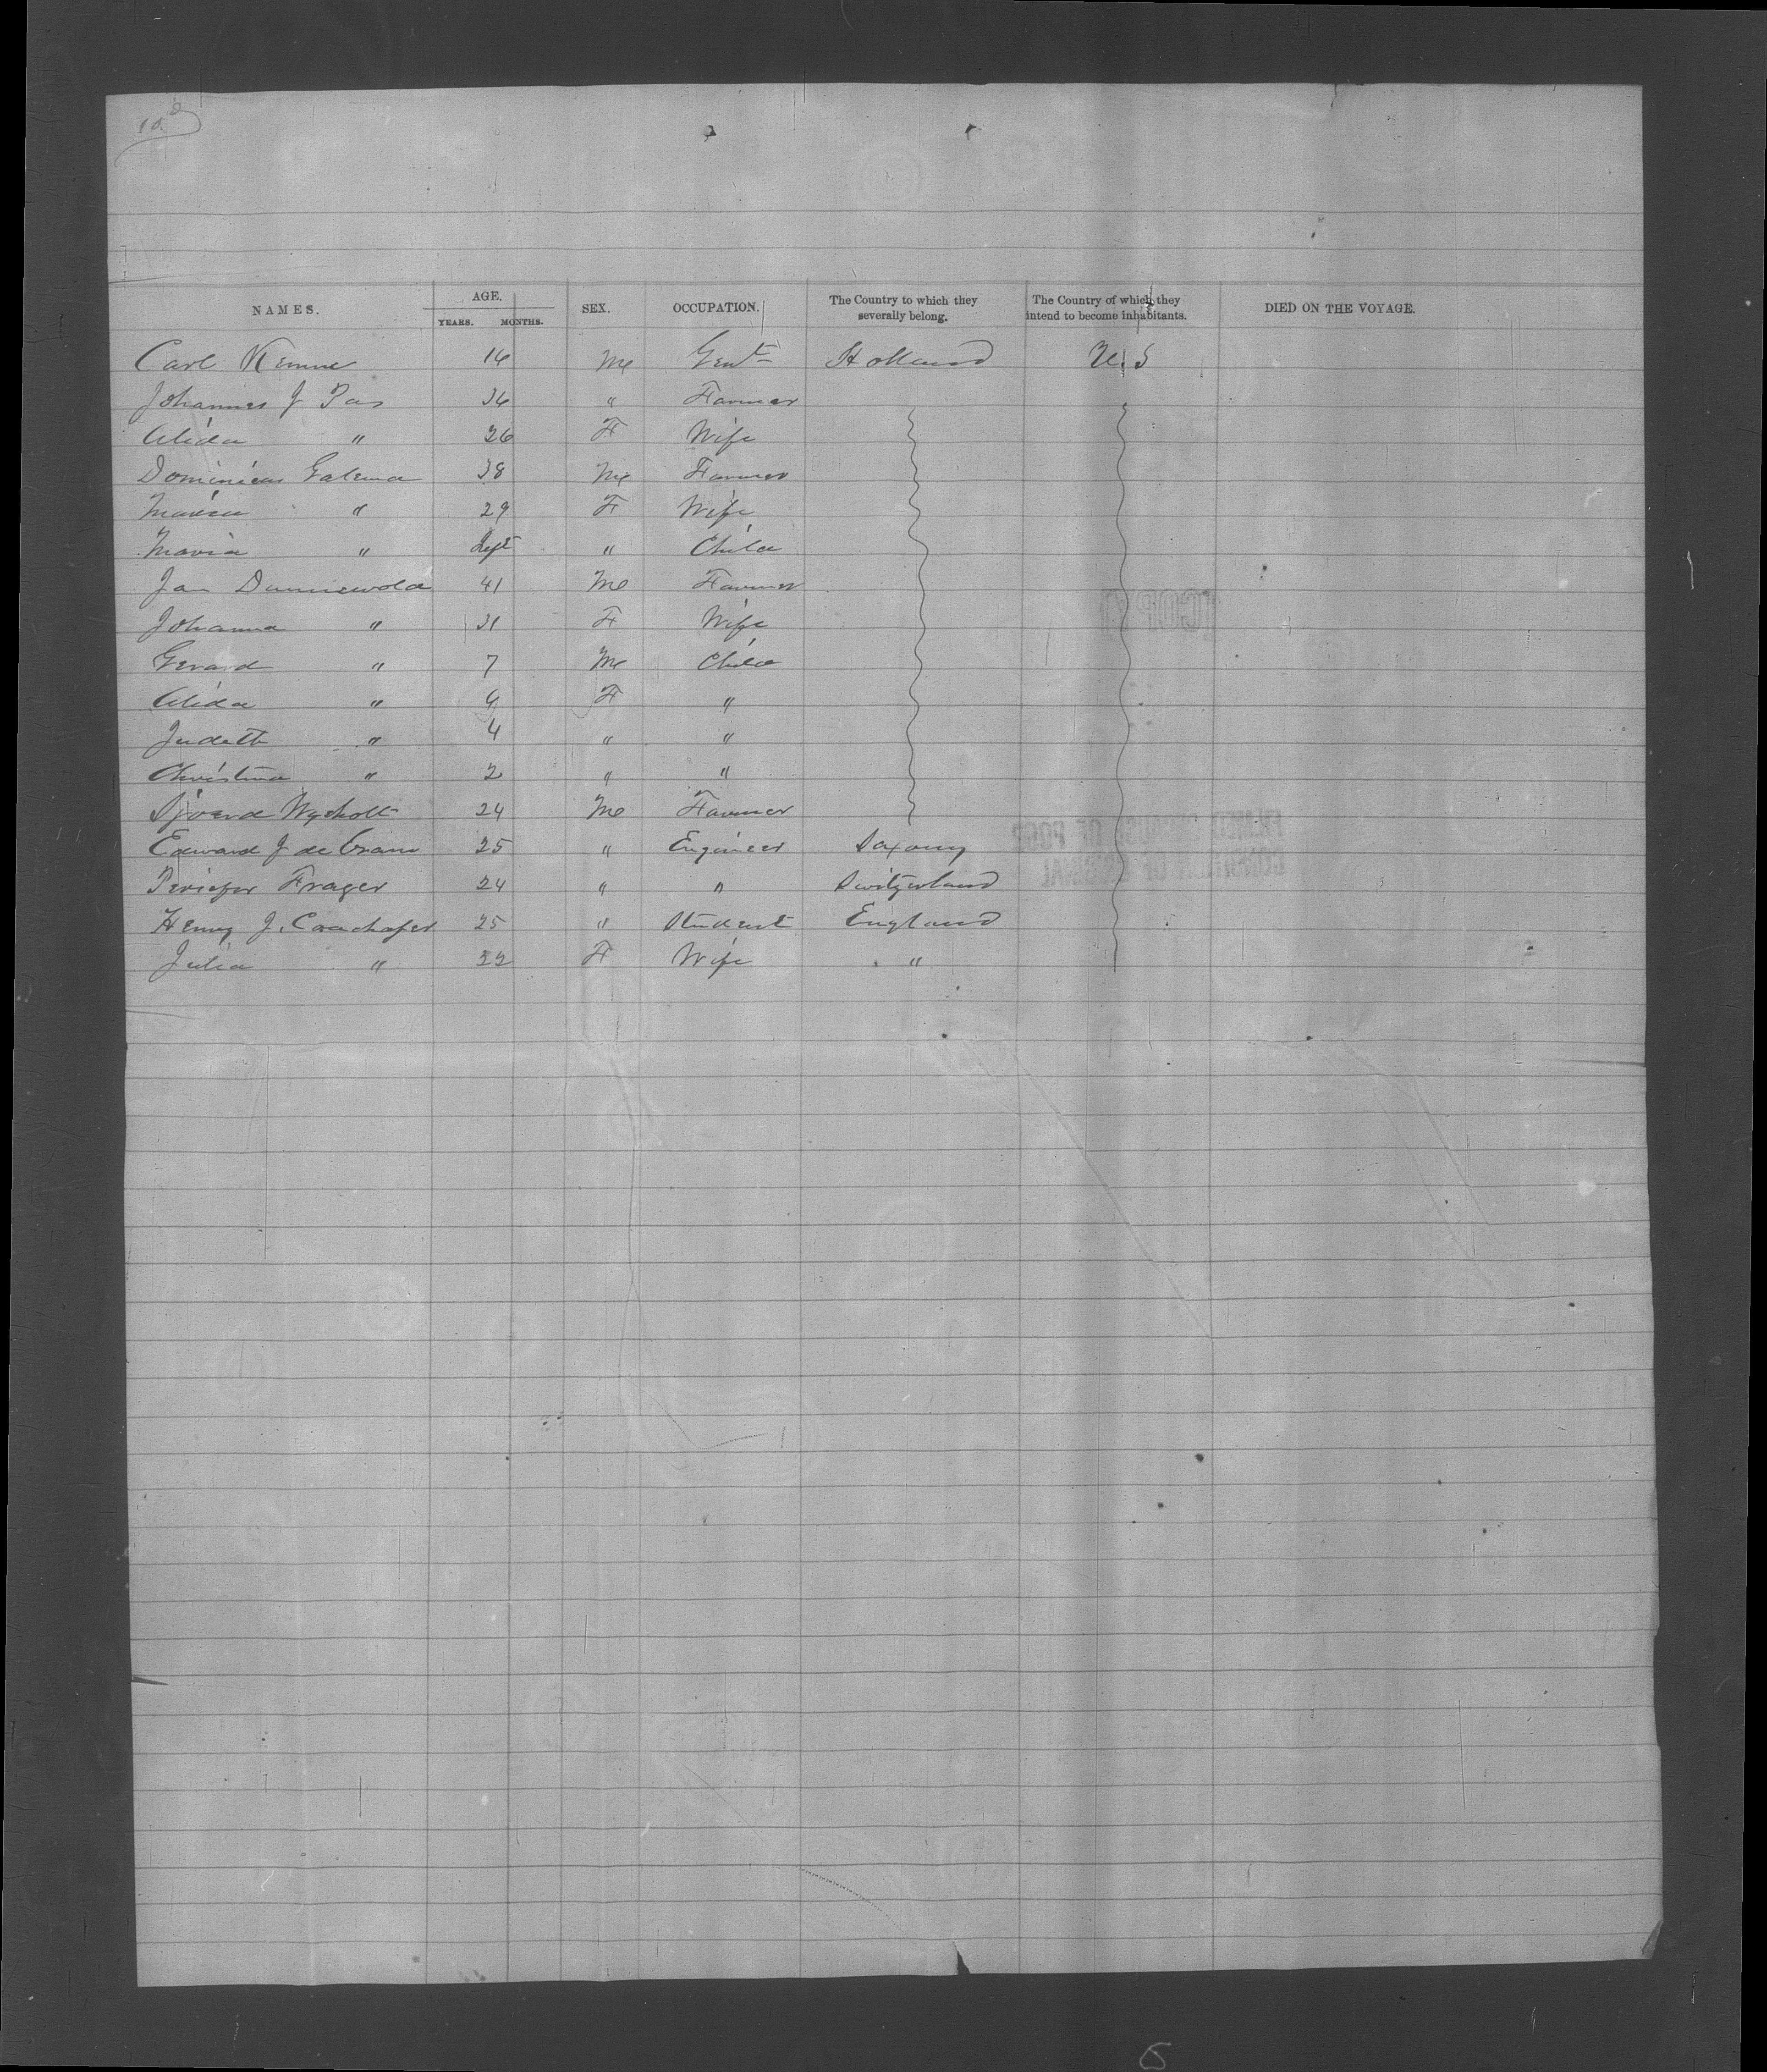 10
NAMES. AGE. YEARS. MONTHS. SEX. OCCUPATION. The Country to which they severally belong. The Country of which they intend to become inhabitants. DIED ON THE VOYAGE.
Carl 16 Me Gent Holland U.S
Johannes J Pas 36 " Farmer
Alida " 26 F Wife
Dominicus Galema 38 Me Farmer
Maria " 29 F Wife
Maria " " Child
Jan Dunnewold 41 Me Farmer
Johanna " 31 F Wife
Gerard " 7 Me Child
Alida " 6 F "
Judith " 4 " "
Christina " 2 " "
Sjoerd 24 Me Farmer
Edward J de 25 " Engineer Saxony
Frager 24 " " Switzerland
Henry J. 25 " Student England
Julia " 22 F Wife "
COPY
FILMED BECAUSE OF POOR
CONDITION OF ORIGINAL
5